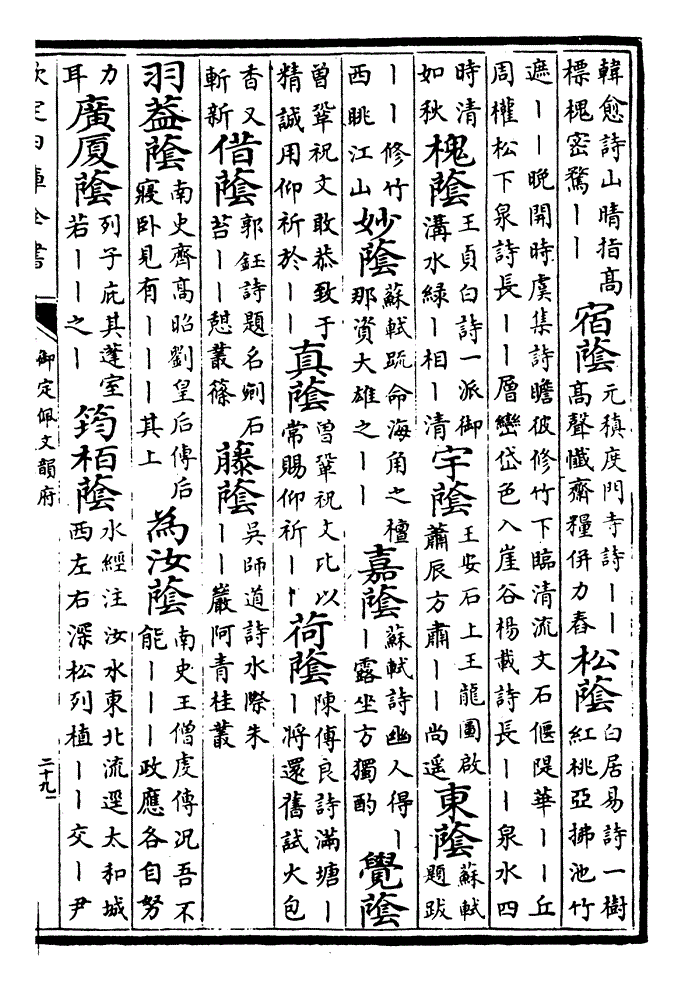 韓愈詩山晴指高
標槐密鶩丨丨
宿蔭
元稹度門寺詩丨丨
高聲懺齋糧併力舂
松蔭
白居易詩一樹
紅桃亞拂池竹
遮丨丨晚開時虞集詩瞻彼修竹下臨清流文石偃隄華丨丨丘
周權松下泉詩長丨丨層巒岱色入崖谷楊載詩長丨丨泉水四
時清
如秋
槐蔭
王貞白詩一派御
溝水綠丨相丨清
宇蔭
王安石上王龍圖啟
蕭辰方肅丨丨尚遥
東蔭
蘇軾
題跋
丨丨修竹
西眺江山
妙蔭
蘇軾疏命海角之檀
那資大雄之丨丨
嘉蔭
蘇軾詩幽人得丨
丨露坐方獨酌
覺蔭
曾鞏祝文敢恭致于
精誠用仰祈於丨丨
真蔭
曾鞏祝文比以
常賜仰祈丨丨
荷蔭
陳傅良詩滿塘丨
丨將還舊試大包
香又
斬新
借蔭
郭鈺詩題名剜石
苔丨丨憇叢篠
藤蔭
吳師道詩水際朱
丨丨巖阿青桂叢
羽葢蔭
南史齊高昭劉皇后傳后
寢卧見有丨丨丨其上
為汝蔭
南史王僧虔傳况吾不
能丨丨丨政應各自努
力
耳
廣厦蔭
列子庇其蓬室
若丨丨之丨
筠栢蔭
水經注汝水東北流逕太和城
西左右深松列植丨丨交丨尹
欽定四庫全書
御定佩文韻府
二十九